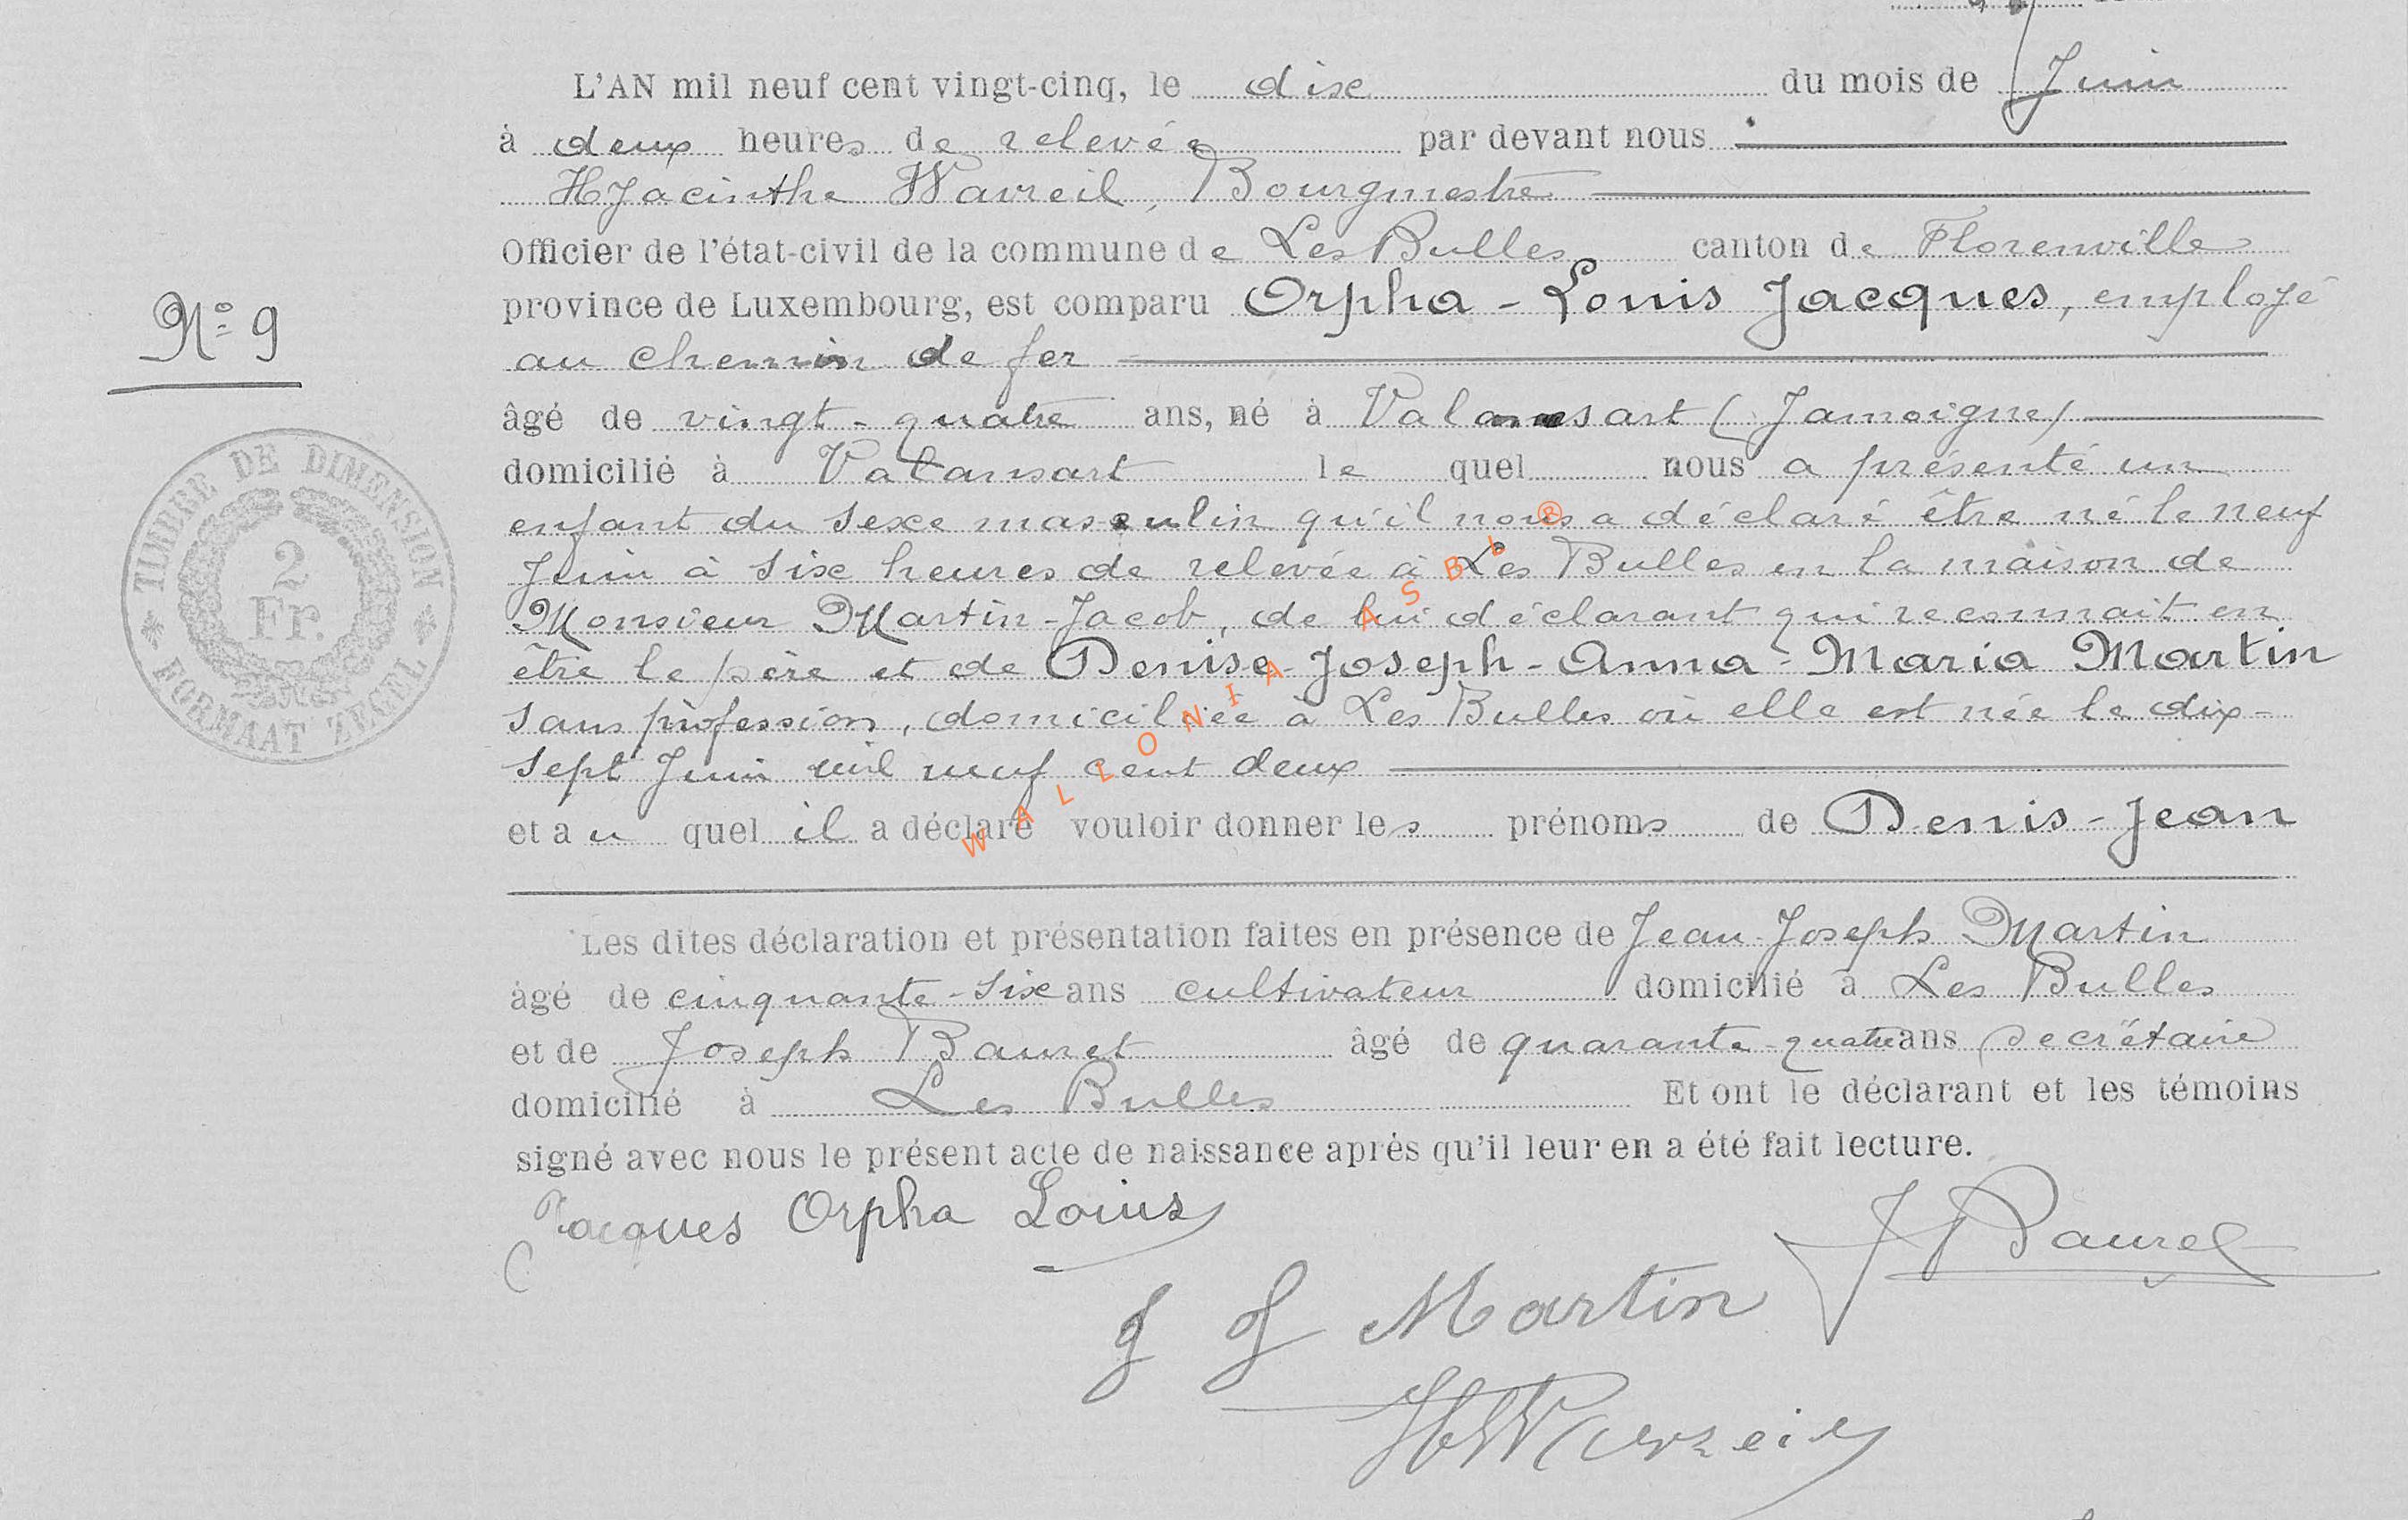 L'AN mil neuf cent vingt-cinq, le dixe du mois de Juin
à deux heures de relevée par devant nous
HJacinthe Wavreil, Bourgmestre
Officier de l'état-civil de la commune de Les Bulles canton de Florenville
province de Luxembourg, est comparu Orpha - Louis Jacques, employé
au chemin de fer
N° 9
âgé de vingt-quatre ans, né à Valansart (Jamoigne)
domicilié à Valansart le quel nous a présenté un
enfant du sexe masculin qu'il nous a déclaré être né le neuf
Juin à sixe heures de relevée à Les Bulles en la maison de
Monsieur Martin-Jacob, de lui déclarant qui reconnait en
être le père et de Denise-Joseph-Anna-Maria Martin
sans profession, domiciliée à Les Bulles où elle est née le dix-
sept Juin mil neuf cent deux
et au quel il a déclaré vouloir donner les prénoms de Denis-Jean
TIMBRE DE DIMENSION
2
Fr.
FORMAAT ZEGEL
WALLONIA ASBL ®
Les dites déclaration et présentation faites en présence de Jean-Joseph Martin
âgé de cinquante-sixe ans cultivateur domicilié à Les Bulles
et de Joseph Bauret âgé de quarante-quatre ans secrétaire
domicilié à Les Bulles Et ont le déclarant et les témoins
signé avec nous le présent acte de naissance après qu'il leur en a été fait lecture.
Jacques Orpha Louis
J Bauret
J J Martin
HWavreil